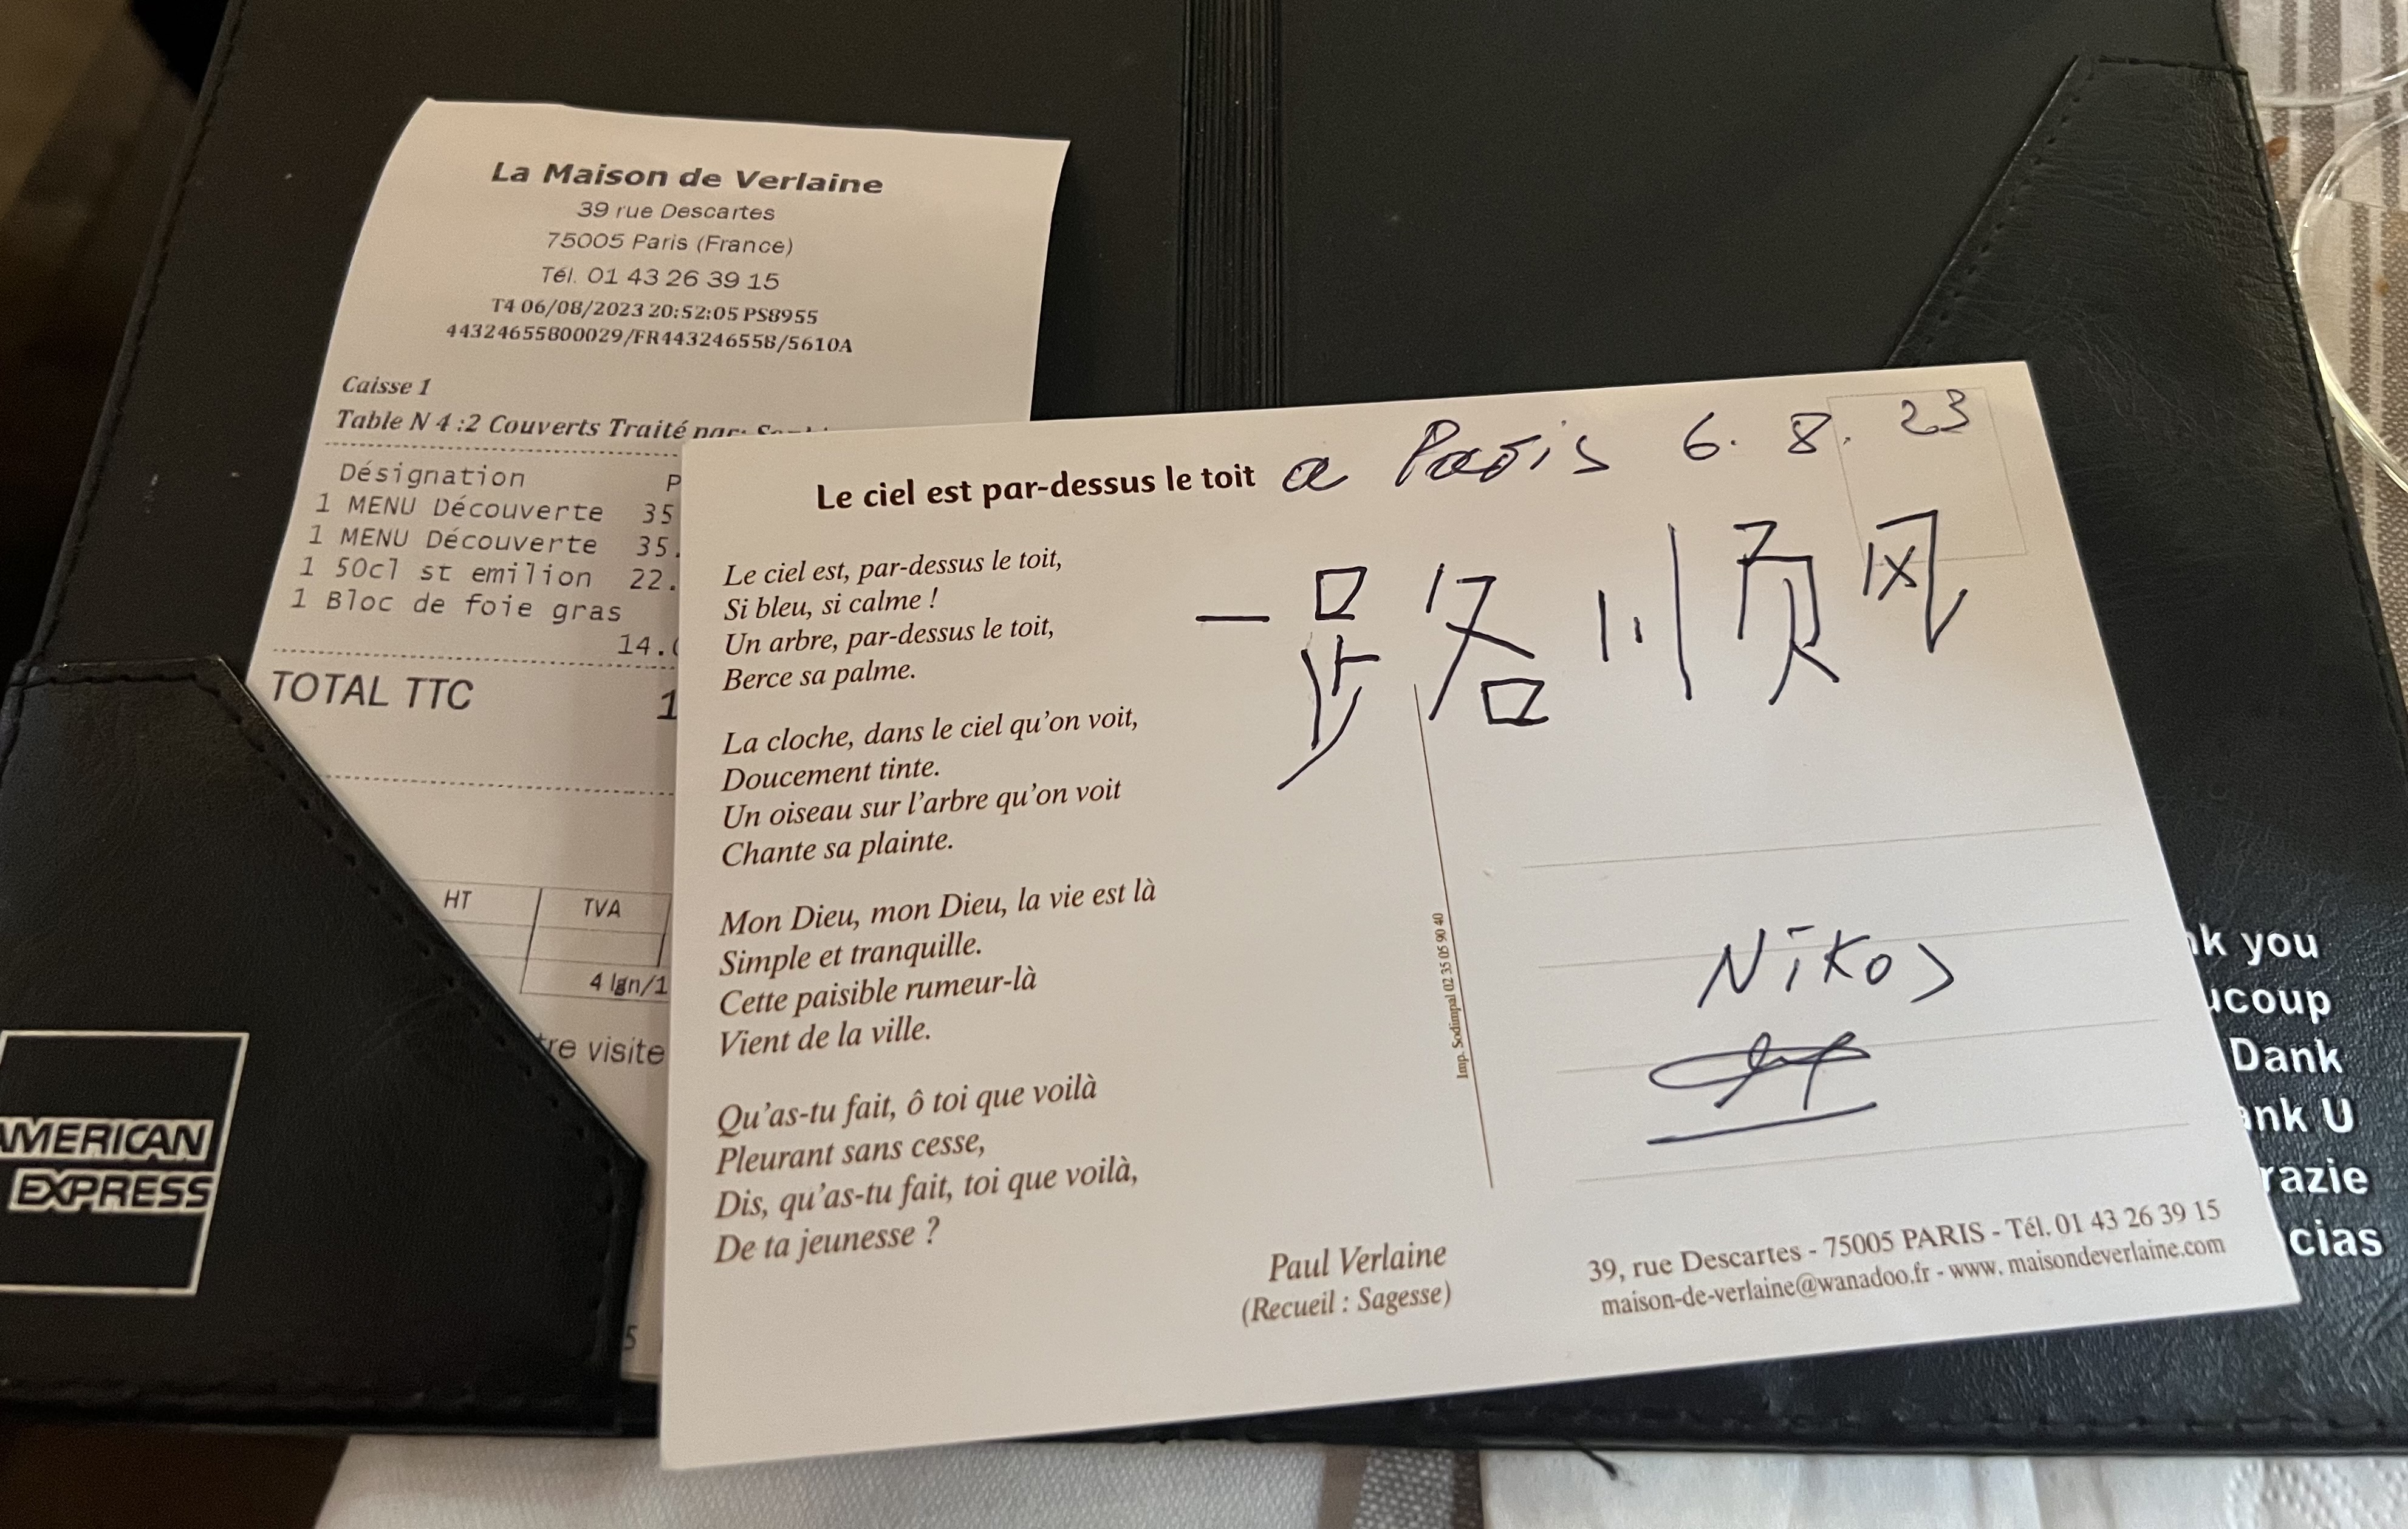 La Maison de Verlaine
39 rue Descartes
75005 Paris (France)
Tél. 01 43 26 39 15
T4 06/08/2023 20:52:05 PS8955
44324655800029/FR443246558/5610A
Caisse 1
Table N 4 :2 Couverts Traité par:
Désignation P
1 MENU Découverte 35
1 MENU Découverte 35.
1 50cl st emilion 22.
1 Bloc de foie gras
14.
TOTAL TTC 1
HT TVA
4 lgn/1
visite
AMERICAN
EXPRESS
Le ciel est par-dessus le toit
a Paris 6. 8. 23
一路顺风
Le ciel est, par-dessus le toit,
Si bleu, si calme !
Un arbre, par-dessus le toit,
Berce sa palme.
La cloche, dans le ciel qu'on voit,
Doucement tinte.
Un oiseau sur l'arbre qu'on voit
Chante sa plainte.
Mon Dieu, mon Dieu, la vie est là
Simple et tranquille.
Cette paisible rumeur-là
Vient de la ville.
Qu'as-tu fait, ô toi que voilà
Pleurant sans cesse,
Dis, qu'as-tu fait, toi que voilà,
De ta jeunesse ?
Paul Verlaine
(Recueil : Sagesse)
Imp. Sodimpal 02 35 05 90 40
Nikos
39, rue Descartes - 75005 PARIS - Tél. 01 43 26 39 15
maison-de-verlaine@wanadoo.fr - www. maisondeverlaine.com
you
Dank
U